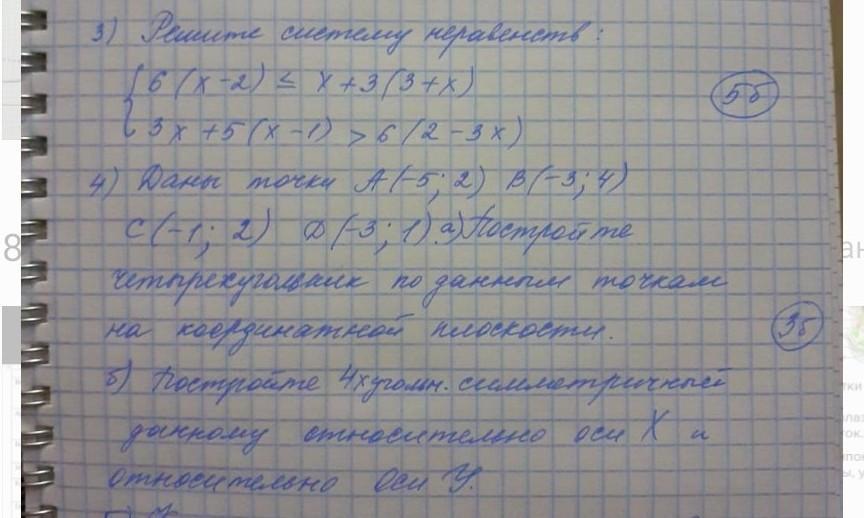 3) Решите систему неравенств:
6(x-2) ≤ x+3(3+x)
5б
3x+5(x-1) > 6(2-3x)
4) Даны точки А(-5; 2) В(-3; 4)
С(-1; 2) D(-3; 1). а) Постройте
четырехугольник по данным точкам
на координатной плоскости.
3б
б) Постройте 4хугольн. симметричный
данному относительно оси X и
относительно Оси У.
8